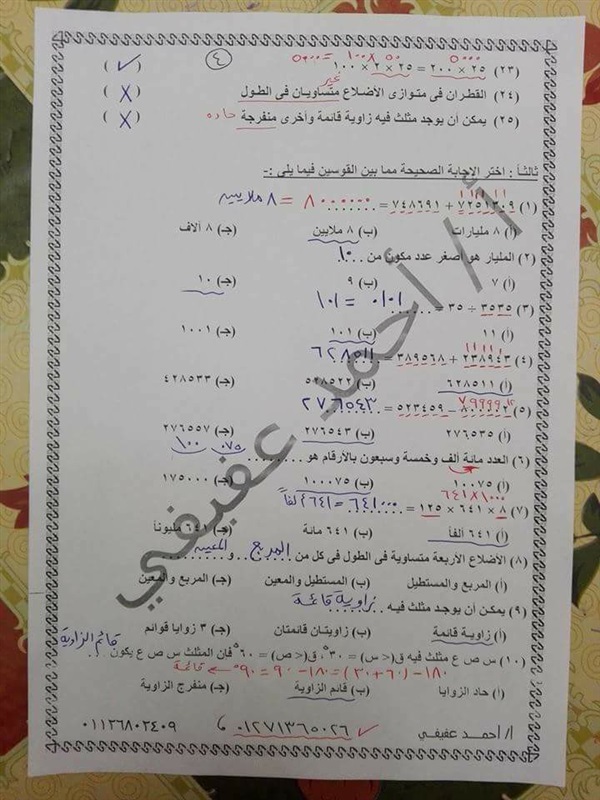 ٤
(٢٣) ٢٥ × ٢٠٠ = ٢٥ × ٢ × ١٠٠ ( ✓ )
٥٠٠٠ = ٥٠ × ١٠٠ ٥٠٠٠
(٢٤) القطران فى متوازى الأضلاع غير متساويان فى الطول ( X )
(٢٥) يمكن أن يوجد مثلث فيه زاوية قائمة وأخرى منفرجة حاده ( X )
ثالثاً : اختر الإجابة الصحيحة مما بين القوسين فيما يلى :-
(١) ٧٢٥١٣٠٩ + ٧٤٨٦٩١ = ........ ٨٠٠٠٠٠٠ = ٨ ملايين
(أ) ٨ مليارات (ب) ٨ ملايين (جـ) ٨ آلاف
(٢) المليار هو أصغر عدد مكون من ..١٠..
(أ) ٧ (ب) ٩ (جـ) ١٠
(٣) ٣٥٣٥ ÷ ٣٥ = ........ ٠١٠١ = ١٠١
(أ) ١١ (ب) ١٠١ (جـ) ١٠٠١
(٤) ٢٣٨٩٤٣ + ٣٨٩٥٦٨ = ........ ٦٢٨٥١١
(أ) ٦٢٨٥١١ (ب) ٥٢٨٥٢٢ (جـ) ٤٢٨٥٣٣
(٥) ٨٠٠٠٠٢ – ٥٢٣٤٥٩ = ........ ٢٧٦٥٤٣
(أ) ٢٧٦٥٣٥ (ب) ٢٧٦٥٤٣ (جـ) ٢٧٦٥٥٧
(٦) العدد مائة ألف وخمسة وسبعون بالأرقام هو ........ ١٠٠ ٠٧٥
(أ) ١٠٠٧٥ (ب) ١٠٠٠٧٥ (جـ) ١٧٥٠٠٠
٦٤١ × ١٠٠٠
(٧) ٨ × ٦٤١ × ١٢٥ = ٦٤١٠٠٠ = ٦٤١ ألفاً
(أ) ٦٤١ ألفاً (ب) ٦٤١ مائة (جـ) ٦٤١ مليوناً
(٨) الأضلاع الأربعة متساوية فى الطول فى كل من ..المربع.. و ..المعين..
(أ) المربع والمستطيل (ب) المستطيل والمعين (جـ) المربع والمعين
(٩) يمكن أن يوجد مثلث فيه ..زاوية قائمة..
(أ) زاوية قائمة (ب) زاويتان قائمتان (جـ) ٣ زوايا قوائم
(١٠) س ص ع مثلث فيه ق(< س) = ٣٠° ، ق(< ص) = ٦٠° فإن المثلث س ص ع يكون .. قائم الزاوية
١٨٠ – (٦٠ + ٣٠) = ١٨٠ – ٩٠ = ٩٠° قائمة
(أ) حاد الزوايا (ب) قائم الزاوية (جـ) منفرج الزاوية
أ/ أحمد عفيفي ٠١٢٧١٣٦٥٠٢٦ ٠١١٢٦٨٠٢٤٠٩
أ / أحمد عفيفي